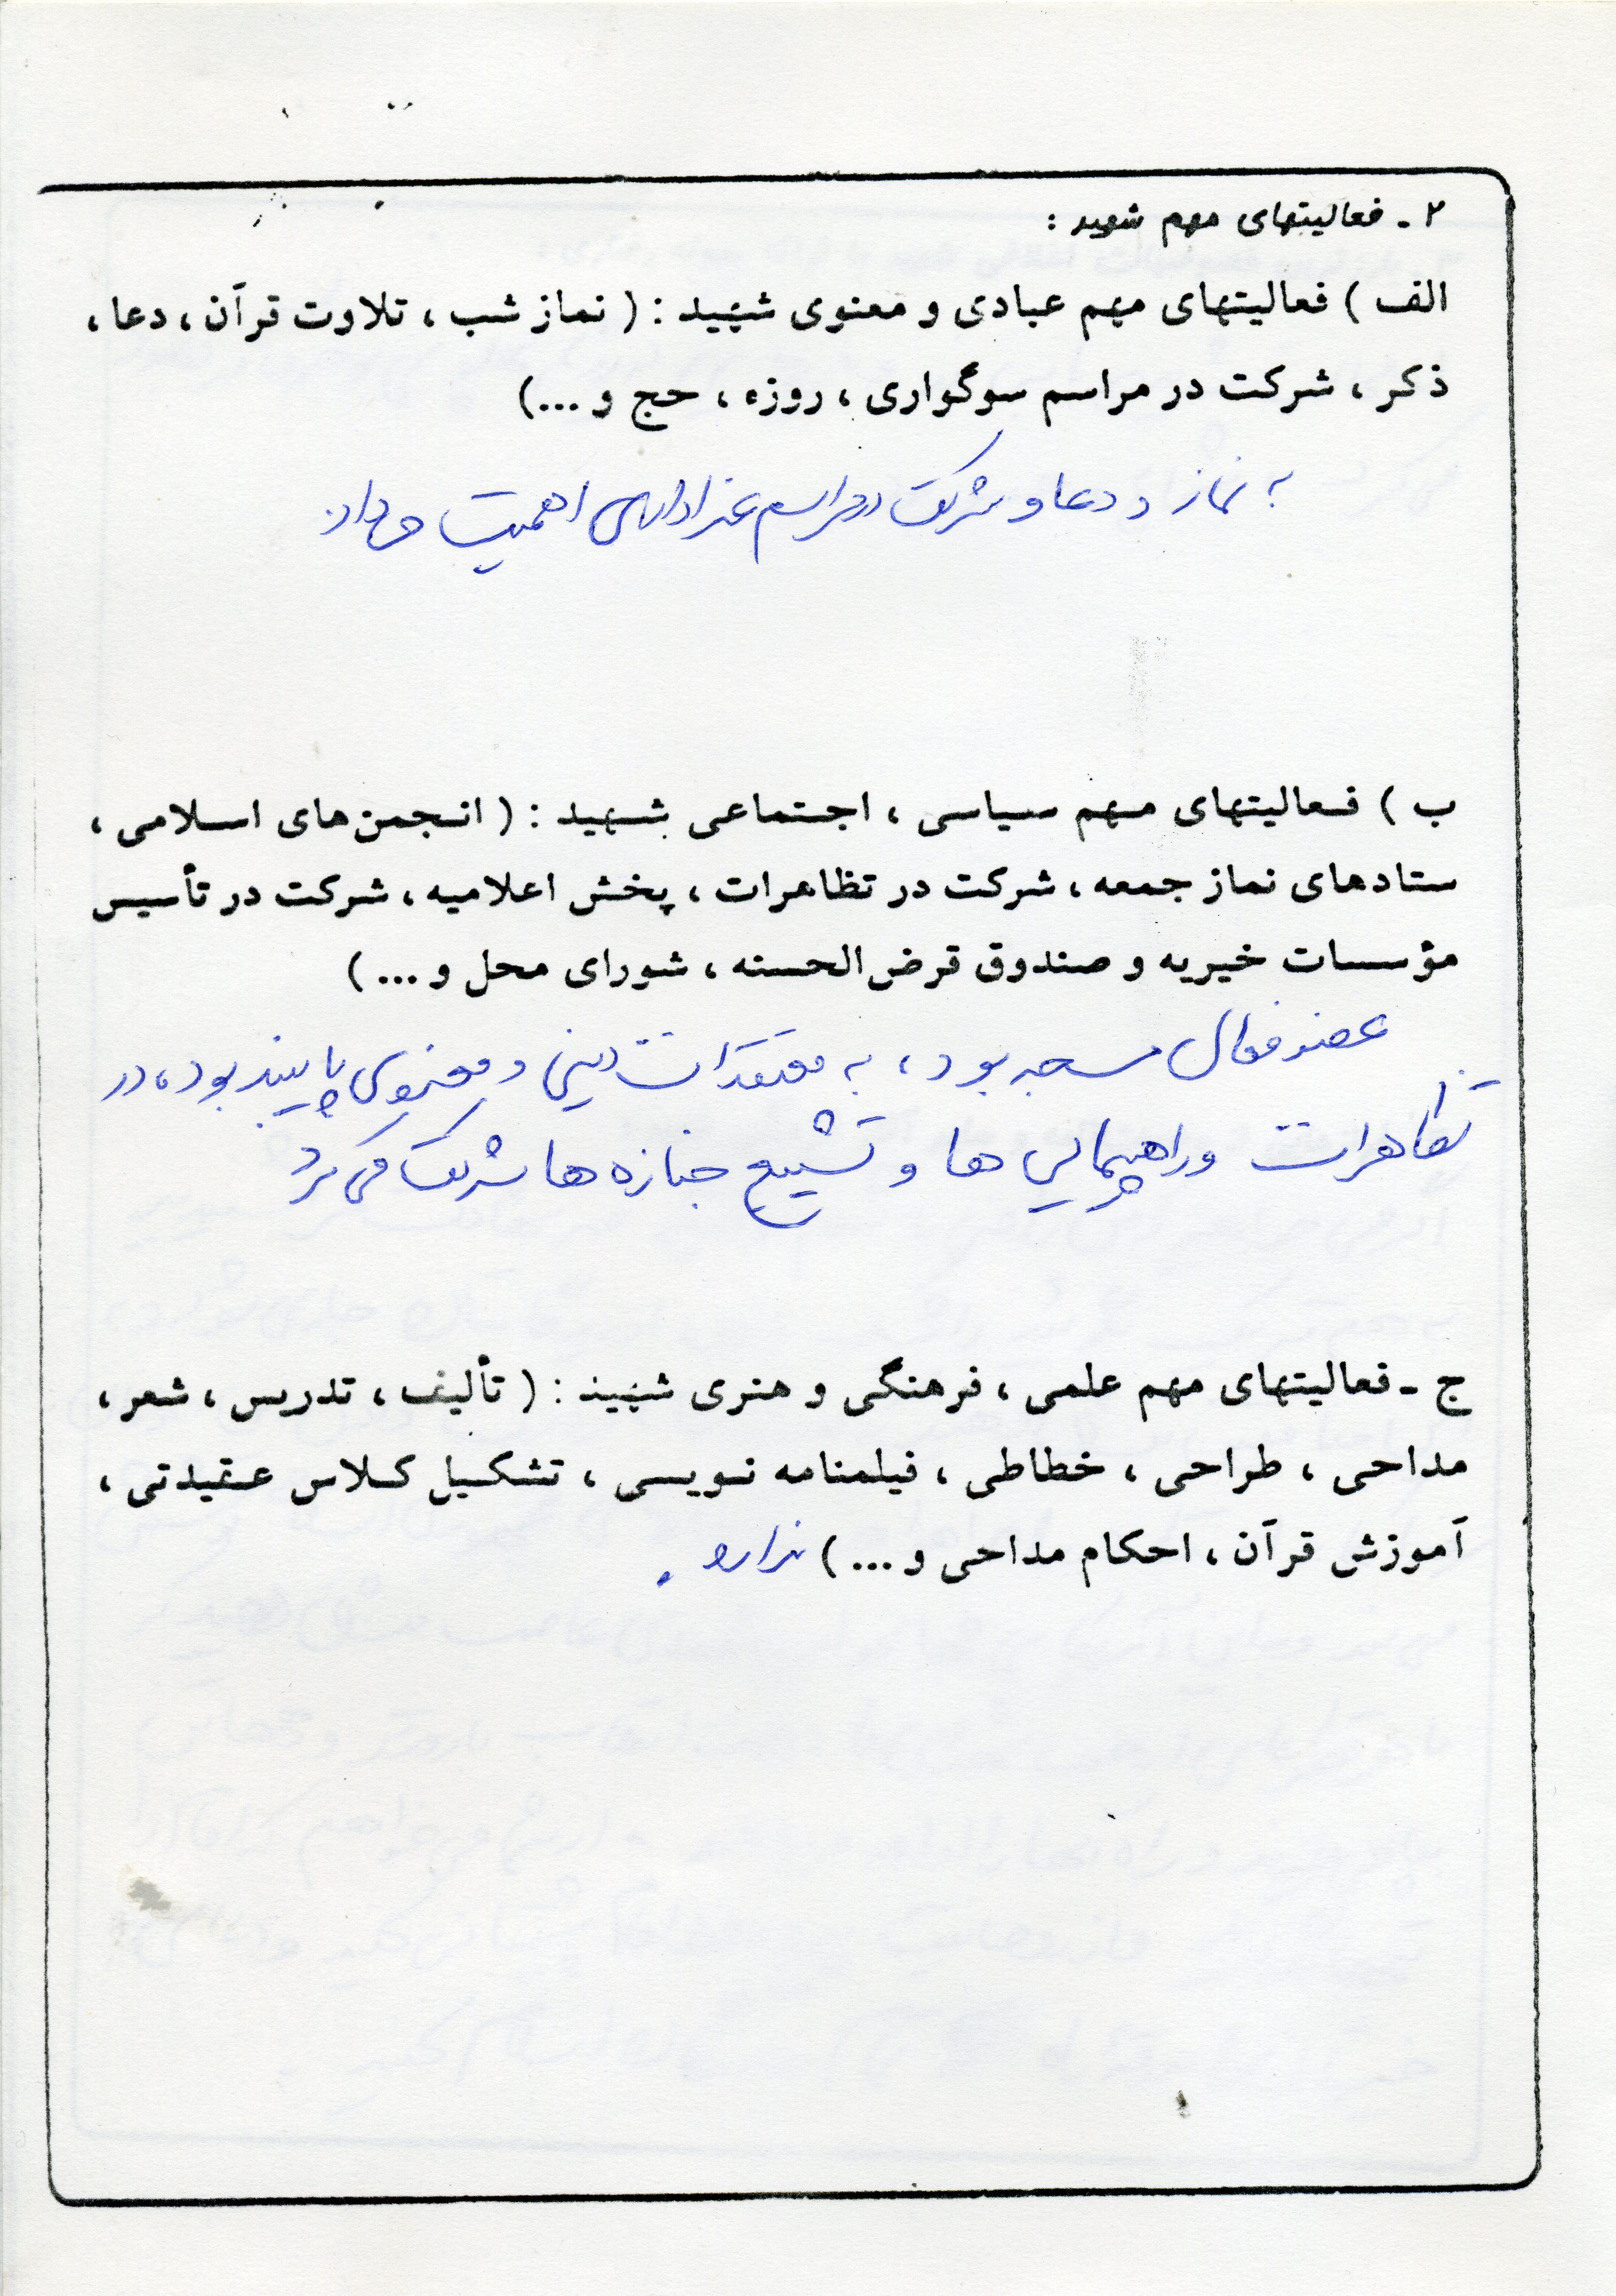 ۲ - فعالیتهای مهم شهید :
الف ) فعالیتهای مهم عبادی و معنوی شهید : ( نماز شب ، تلاوت قرآن ، دعا ،
ذکر ، شرکت در مراسم سوگواری ، روزه ، حج و ...)
به نماز و دعا و شرکت در مراسم عزاداری اهمیت می داد.
ب ) فعالیتهای مهم سیاسی ، اجتماعی شهید : ( انجمن های اسلامی ،
ستادهای نماز جمعه ، شرکت در تظاهرات ، پخش اعلامیه ، شرکت در تأسیس
مؤسسات خیریه و صندوق قرض الحسنه ، شورای محل و ... )
عضو فعال مسجد بود ، به معتقدات دینی و معنوی پایبند بوده در
تظاهرات و راهپیمایی ها و تشییع جنازه ها شرکت می کرد
ج - فعالیتهای مهم علمی ، فرهنگی و هنری شهید : ( تألیف ، تدریس ، شعر ،
مداحی ، طراحی ، خطاطی ، فیلمنامه نویسی ، تشکیل کلاس عقیدتی ،
آموزش قرآن ، احکام مداحی و ... ) ندارد .